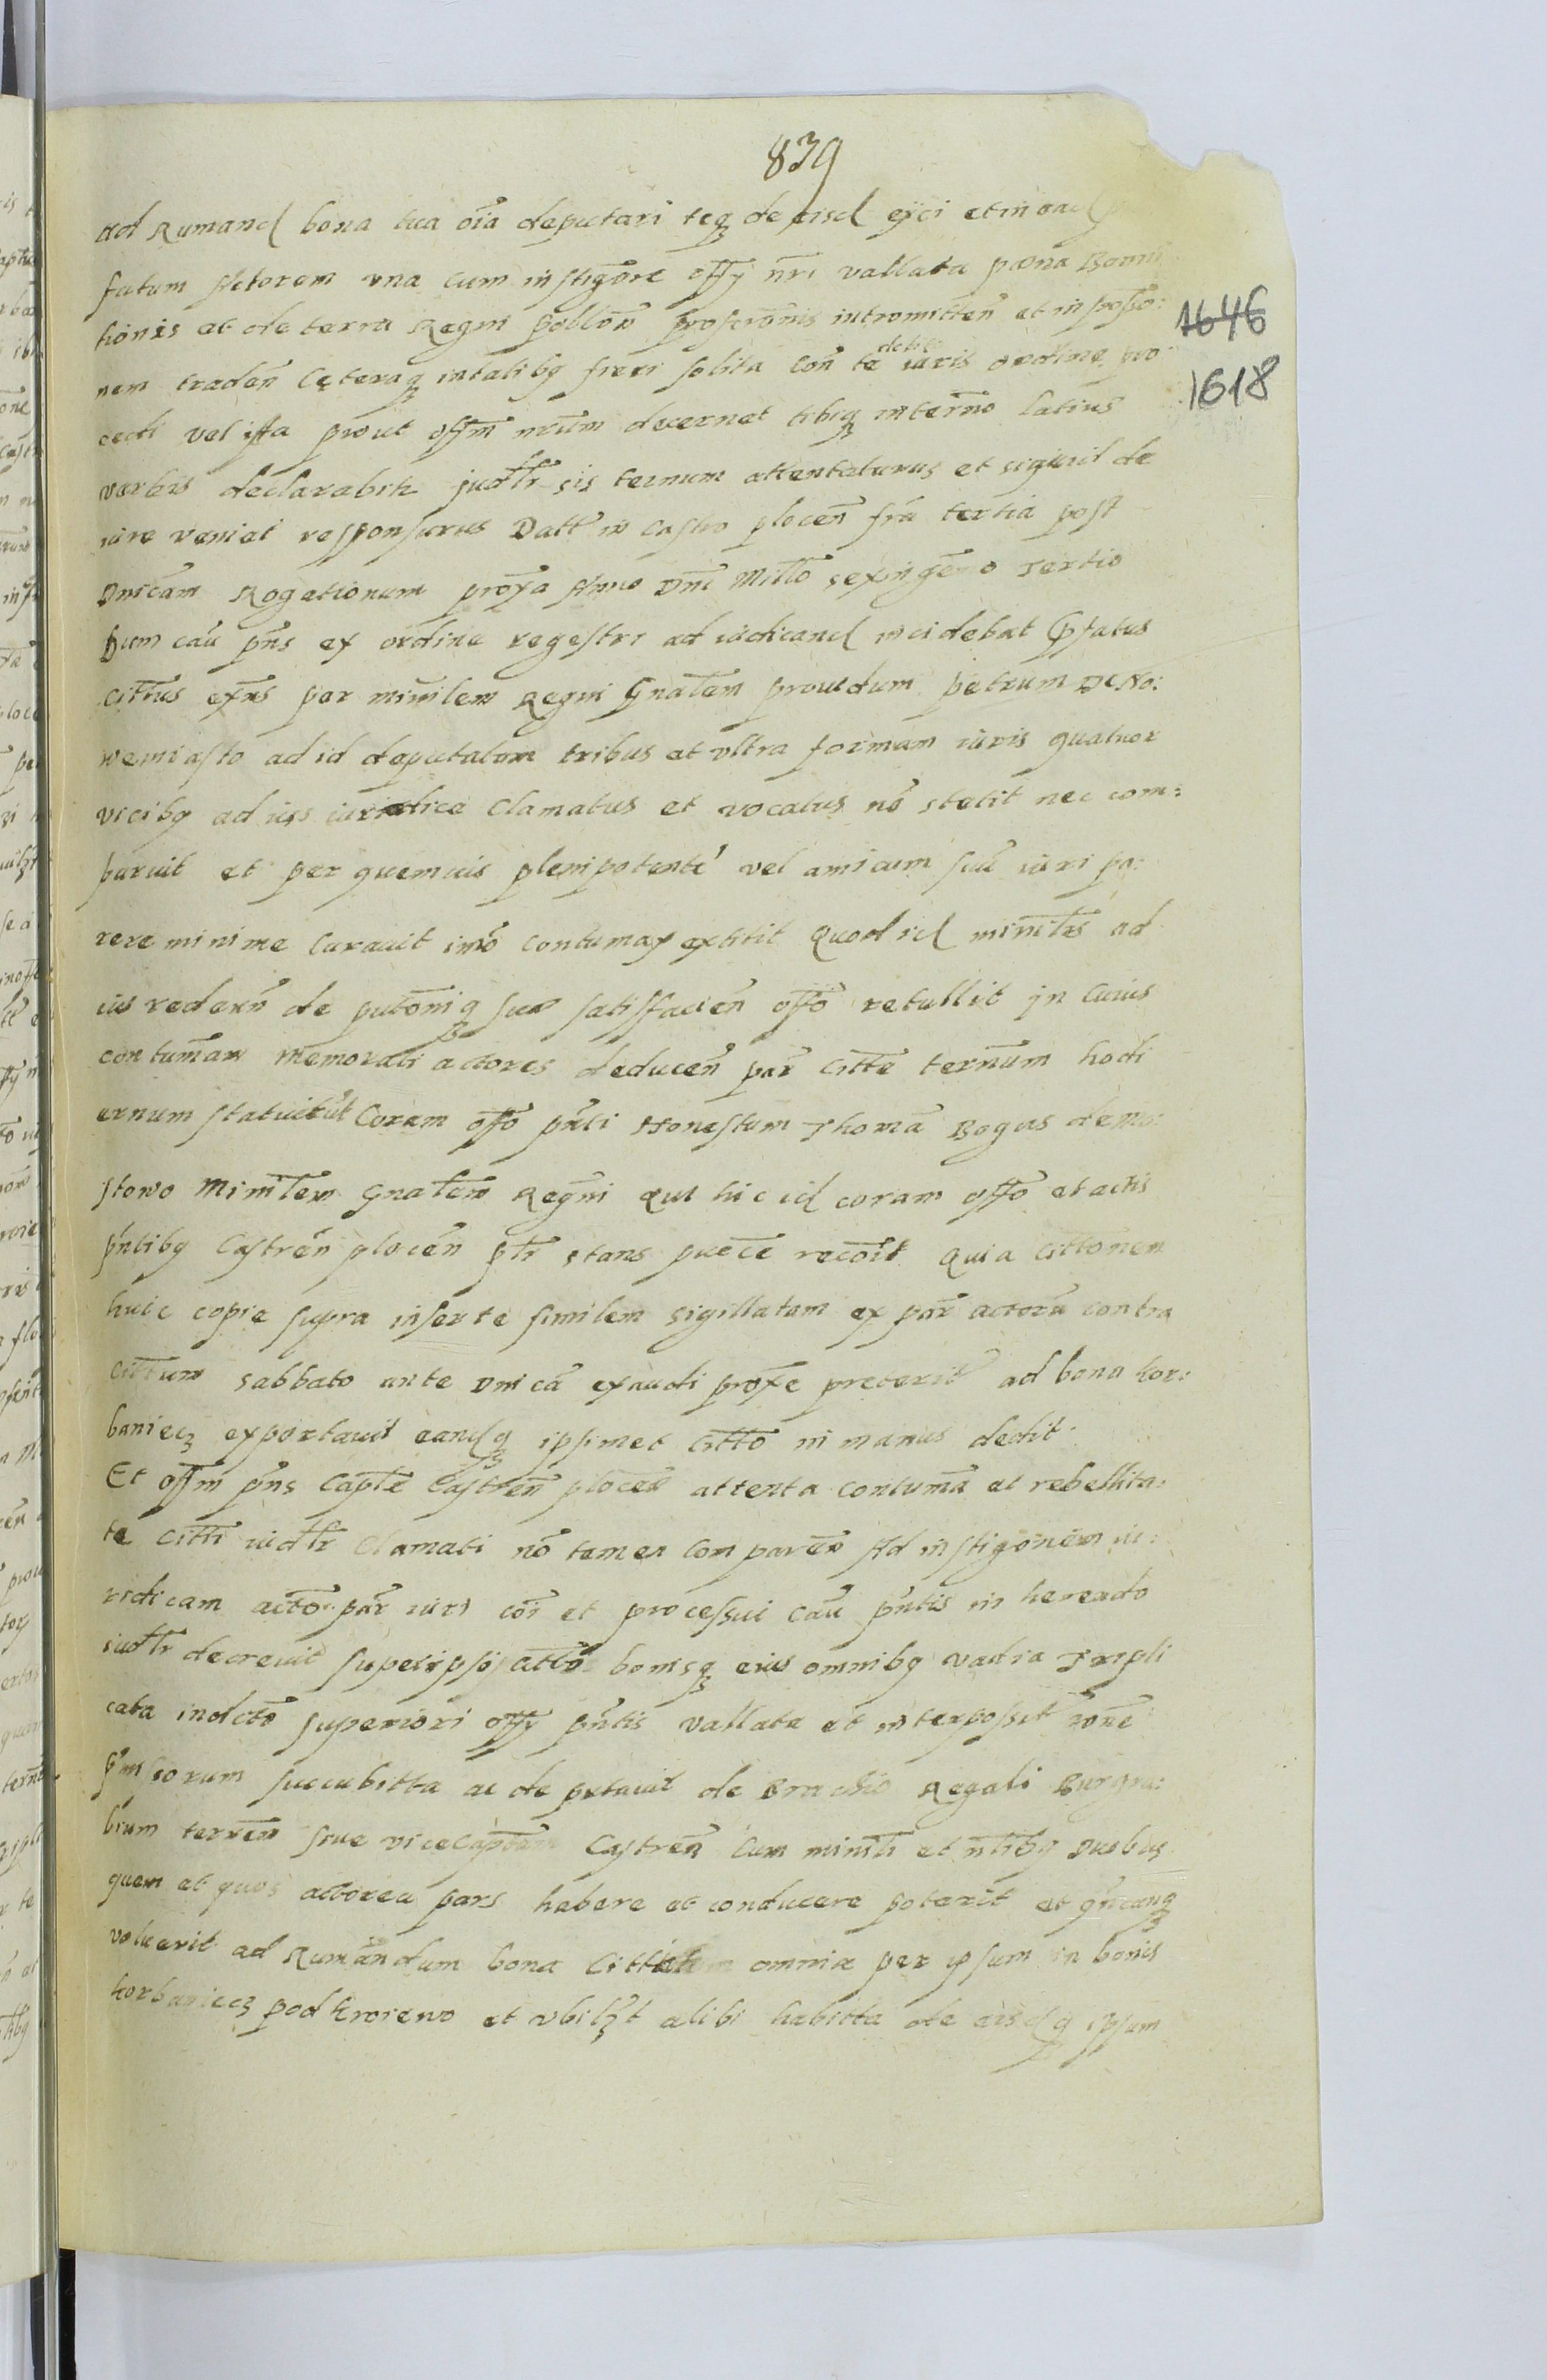 839
ad Rumand bona tua oîa deputari teq̨ de eisd eijci et in ead
fatum Actorem vna cum instigãre offÿ nr̃i vallata pœna Banni
tionis at de terra Regni polloñ proscriõnis intromitteñ et in posso:
1646
nem tradeñ Cęteraq̨ in talibq fieri solita coñ te debito iuris ordine pro
1618
cedi vel ista prout offm nrũm decernet tibiq̨ in termõ latius
verbis declarabitr jud̃tr sis ternum attentaturus et siquid de
iure veniat responsurus Datt in Castro plocen̄ fr̃a tertia post
Dnicam Rogationum prox̃a Anno Dnĩ Millõ sexingẽno Tertio
Dum caũ pñs ex ordine regestri ad iudicand incidebat Pfatus
Cittus exñs per ministlem Regni Gnãlem prouidum petrum de No:
wemiasto ad id deputatum tribus at vltra formam iuris quatuor
vicibq ad iuss iuridice Clamatus et vocatus nõ stetit nec com:
paruit et per quemuis plenipotente vel amicum suũ iuri pa:
rere minime curauit imõ contumax extitit Quod id ministrs ad
ius redeuñ de putõniq̨ sux satisfacieñ offõ retullit jn Cuius
contumãm memorati actores deduceñ par̃ Citte ternũum hodi
ernum statuerũt Coram offõ pñti Honestum Thomã Bogus de Mo:
stowo Ministlem Gnãlem Regni qui hic id coram offõ et actis
pñtibq Castreñ ploceñ ptr̃ stans puẽce recõit Quia Cittonem
huic copie supra inserte similem sigillatam ex par̃ actorũ contra
Cittum sabbato ante Dnicã exaudi prox̃e preterit̃ ad bona kor:
baniecz exportauit eandq̨ ipsimet Cittõ in manus dedit
Et offm pñs Capte Castreñ ploceñ attenta contumã at rebellita:
te Citti iud̃tr Clamati nõ tamen compareñ Ad instigõnem iu:
ridicam actõ par̃ iuri coĩ et processui caũ pñtis in herendo
iud̃tr decreuit super ipso Cittõ bonisq̨ eius omnibq vadia Tripli
cata indictõ superiori offÿ pñtis vallata et interposit̃ rõne
pmissorum succubitta ac deputauit de Brachio Regali Burgra:
bium terreñ siue viceCaptem Castreñ Cum ministi et nltibq Duobus
quem at quos actorea pars habere at conducere poterit et qñcunq̨
voluerit ad Rumandum bona Citti omnia per ipsum in bonis
korbaniecz podkroiewo et vbilzt alibi habitta de eisdq̨ ipsum